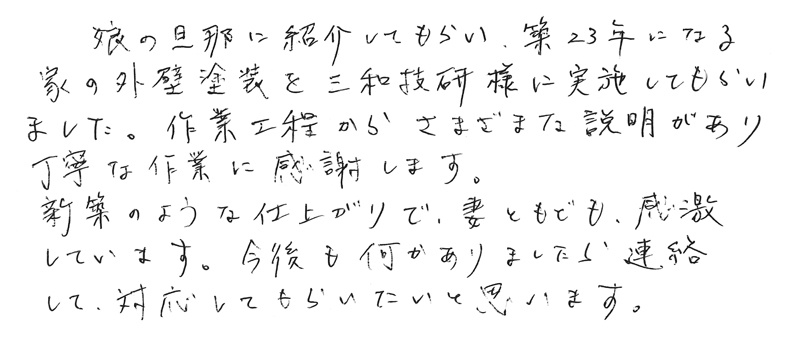 娘の旦那に紹介してもらい、築23年になる
家の外壁塗装を三和技研様に実施してもらい
ました。作業工程からさまざまな説明があり
丁寧な作業に感謝します。
新築のような仕上がりで、妻ともども、感激
しています。今後も何かありましたら連絡
して、対応してもらいたいと思います。